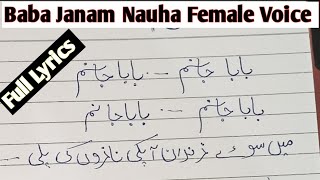 Baba Janam Nauha Female Voice
Full Lyrics
بابا جانم --- بابا جانم
بابا جانم --- بابا جانم
میں سوئے زندان آپکی نازوں کی پلی ---